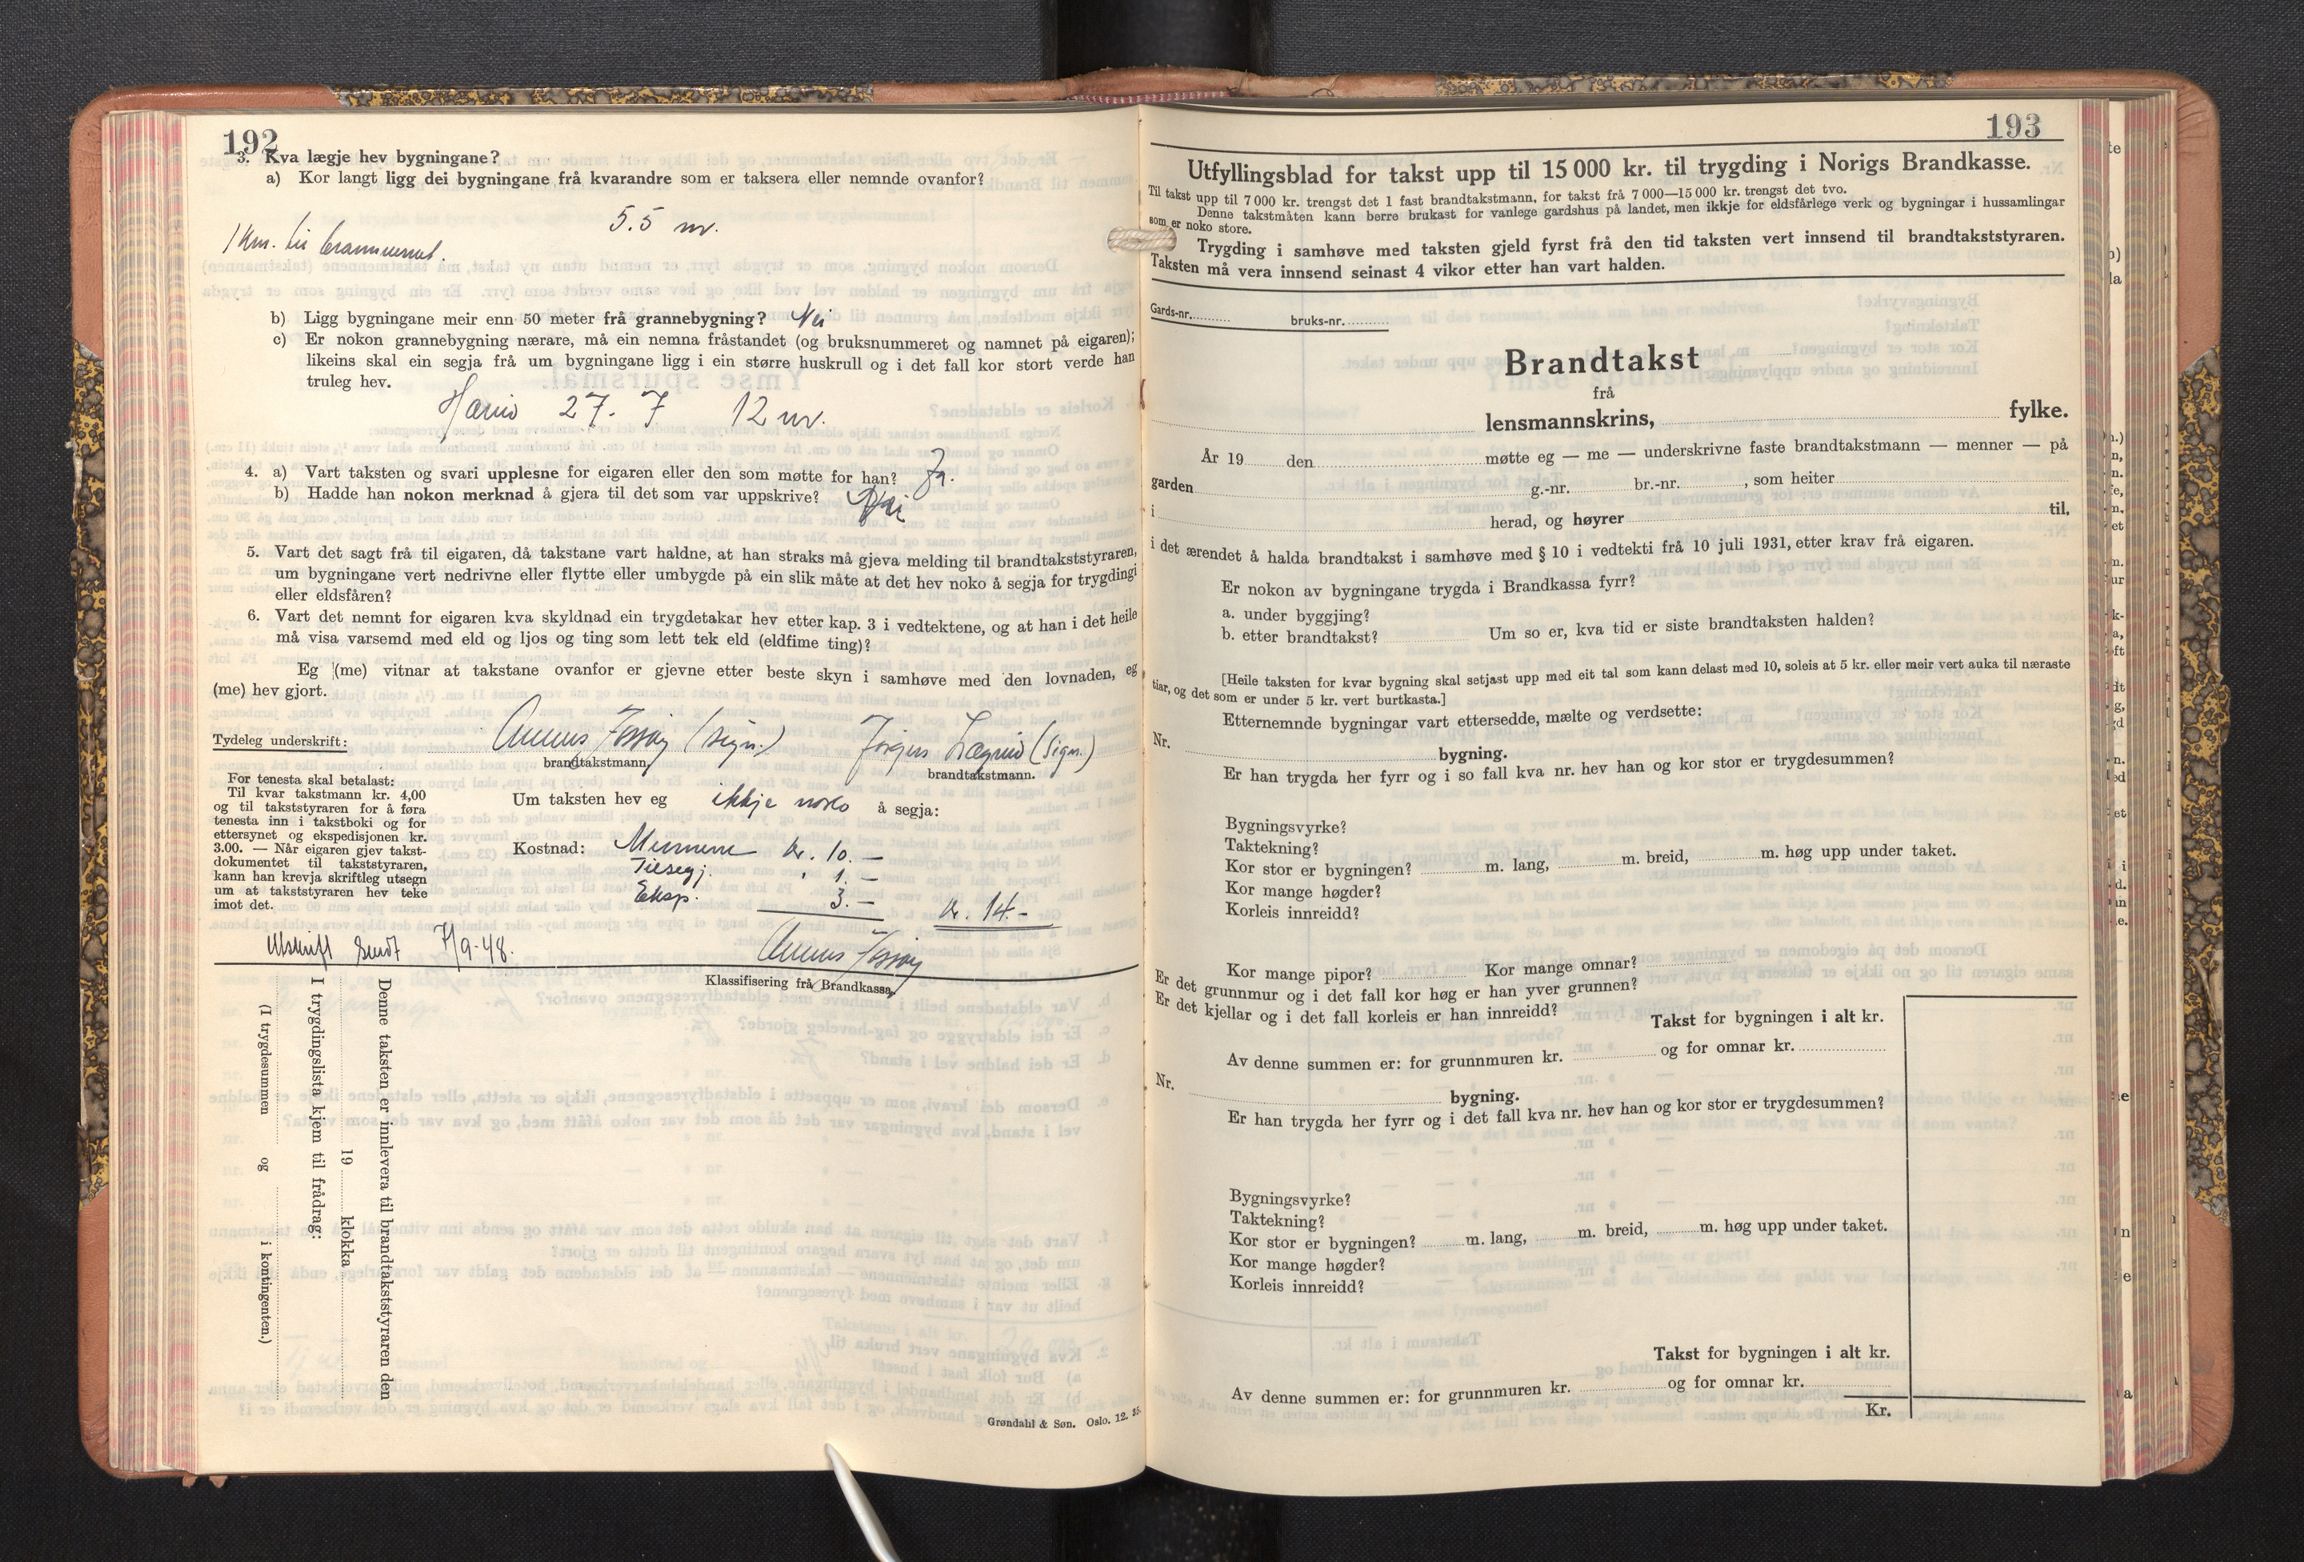 192
3. Kva lægje hev bygningane?
a) Kor langt ligg dei bygningane frå kvarandre som er taksera eller nemnde ovanfor?
5.5 m.
1 km. til
b) Ligg bygningane meir enn 50 meter frå grannebygning? Nei
c) Er nokon grannebygning nærare, må ein nemna fråstandet (og bruksnummeret og namnet på eigaren);
likeins skal ein segja frå um bygningane ligg i ein større huskrull og i det fall kor stort verde han
truleg hev.
27. 7 12 m.
4. a) Vart taksten og svari upplesne for eigaren eller den som møtte for han? Ja.
b) Hadde han nokon merknad å gjera til det som var uppskrive? Nei
5. Vart det sagt frå til eigaren, då takstane vart haldne, at han straks må gjeva melding til brandtakststyraren,
um bygningane vert nedrivne eller flytte eller umbygde på ein slik måte at det hev noko å segja for trygdingi
eller eldsfåren?
6. Vart det nemnt for eigaren kva skyldnad ein trygdetakar hev etter kap. 3 i vedtektene, og at han i det heile
må visa varsemd med eld og ljos og ting som lett tek eld (eldfime ting)?
Eg (me) vitnar at takstane ovanfor er gjevne etter beste skyn i samhøve med den lovnaden, eg
(me) hev gjort.
Tydeleg underskrift: (sign.) Jørgen (sign.)
brandtakstmann brandtakstmann.
For tenesta skal betalast:
Til kvar takstmann kr. 4,00
og til takststyraren for å føra
tenesta inn i takstboki og for
ettersynet og ekspedisjonen kr.
3.00. — Når eigaren gjev takst-
dokumentet til takststyraren,
kann han krevja skriftleg utsegn
um at takststyraren hev teke
imot det.
Um taksten hev eg ikkje noko å segja:
Kostnad: Mennene kr. 10.—
Tilsegj. " 1.—
Eksp. 3.— kr. 14.—
Utskrift sendt 7/9-48.
Klassifisering frå Brandkassa
Denne taksten er innlevera til brandtakststyraren den
19 klokka
I trygdingslista kjem til frådrag:
(I trygdesummen og i kontingenten.)
Grøndahl & Søn. Oslo. 12. 35.
193
Utfyllingsblad for takst upp til 15 000 kr. til trygding i Norigs Brandkasse.
Til takst upp til 7 000 kr. trengst det 1 fast brandtakstmann, for takst frå 7 000—15 000 kr. trengst det tvo.
Denne takstmåten kann berre brukast for vanlege gardshus på landet, men ikkje for eldsfårlege verk og bygningar i hussamlingar
som er noko store.
Trygding i samhøve med taksten gjeld fyrst frå den tid taksten vert innsend til brandtakststyraren.
Taksten må vera innsend seinast 4 vikor etter han vart halden.
Gards-nr. bruks-nr.
Brandtakst
frå
lensmannskrins, fylke.
År 19 den møtte eg — me — underskrivne faste brandtakstmann — menner — på
garden g.-nr. br.-nr. , som heiter
i herad, og høyrer til,
i det ærendet å halda brandtakst i samhøve med § 10 i vedtekti frå 10 juli 1931, etter krav frå eigaren.
Er nokon av bygningane trygda i Brandkassa fyrr?
a. under byggjing?
b. etter brandtakst? Um so er, kva tid er siste brandtaksten halden?
[Heile taksten for kvar bygning skal setjast upp med eit tal som kann delast med 10, soleis at 5 kr. eller meir vert auka til næraste
tiar, og det som er under 5 kr. vert burtkasta.]
Etternemnde bygningar vart ettersedde, mælte og verdsette:
Nr. bygning.
Er han trygda her fyrr og i so fall kva nr. hev han og kor stor er trygdesummen?
Bygningsvyrke?
Taktekning?
Kor stor er bygningen? m. lang, m. breid, m. høg upp under taket.
Kor mange høgder?
Korleis innreidd?
Kor mange pipor? Kor mange omnar?
Er det grunnmur og i det fall kor høg er han yver grunnen?
Er det kjellar og i det fall korleis er han innreidd?
Takst for bygningen i alt kr.
Av denne summen er: for grunnmuren kr. og for omnar kr.
Nr. bygning.
Er han trygda her fyrr og i det fall kva nr. hev han og kor stor er trygdesummen?
Bygningsvyrke?
Taktekning?
Kor stor er bygningen? m. lang, m. breid, m. høg upp under taket.
Kor mange høgder?
Korleis innreidd?
Takst for bygningen i alt kr.
Av denne summen er: for grunnmuren kr. og for omnar kr.
Kr.